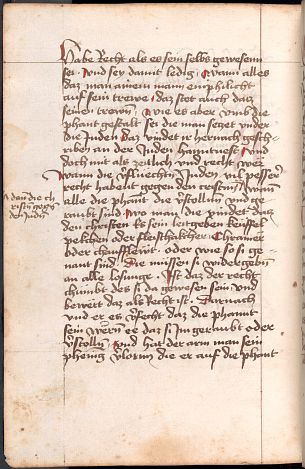 Habe Recht als es sein selbs gewesenn
sei · Und sey damit ledig · Wann alles
daz man ainem mann emphilicht
auf sein trewe · daz stet auch das
seinen trewn · Wie es aber umb die
phant gestalt sei die man setzet under
die Juden daz vindet ir hernach gesch-
riben an der Juden hanntvest · Und
doch mit als zeitlich und recht wer
Wann die Juden vil pesser
recht habent gegen den cristen · Wann
alle die phant die verstolln und ge-
raubt sind · Wo man die vindet daz
den christen es sein leitgeben
oder fleischhakcher Chramer
oder wie so si ge-
nant sind · Die muessen si widergeben
an alle losunge · Ist daz der recht
chumbt des si da gewesen sein und
bewert daz als Recht ist · Darnach
und er es daz die phannt
sein wern ee daz si im geraubt oder
verstolln · Und hat der arm man sein
phenig verlorn die er auf die phant
dan die ch
risten gegen
den Juden